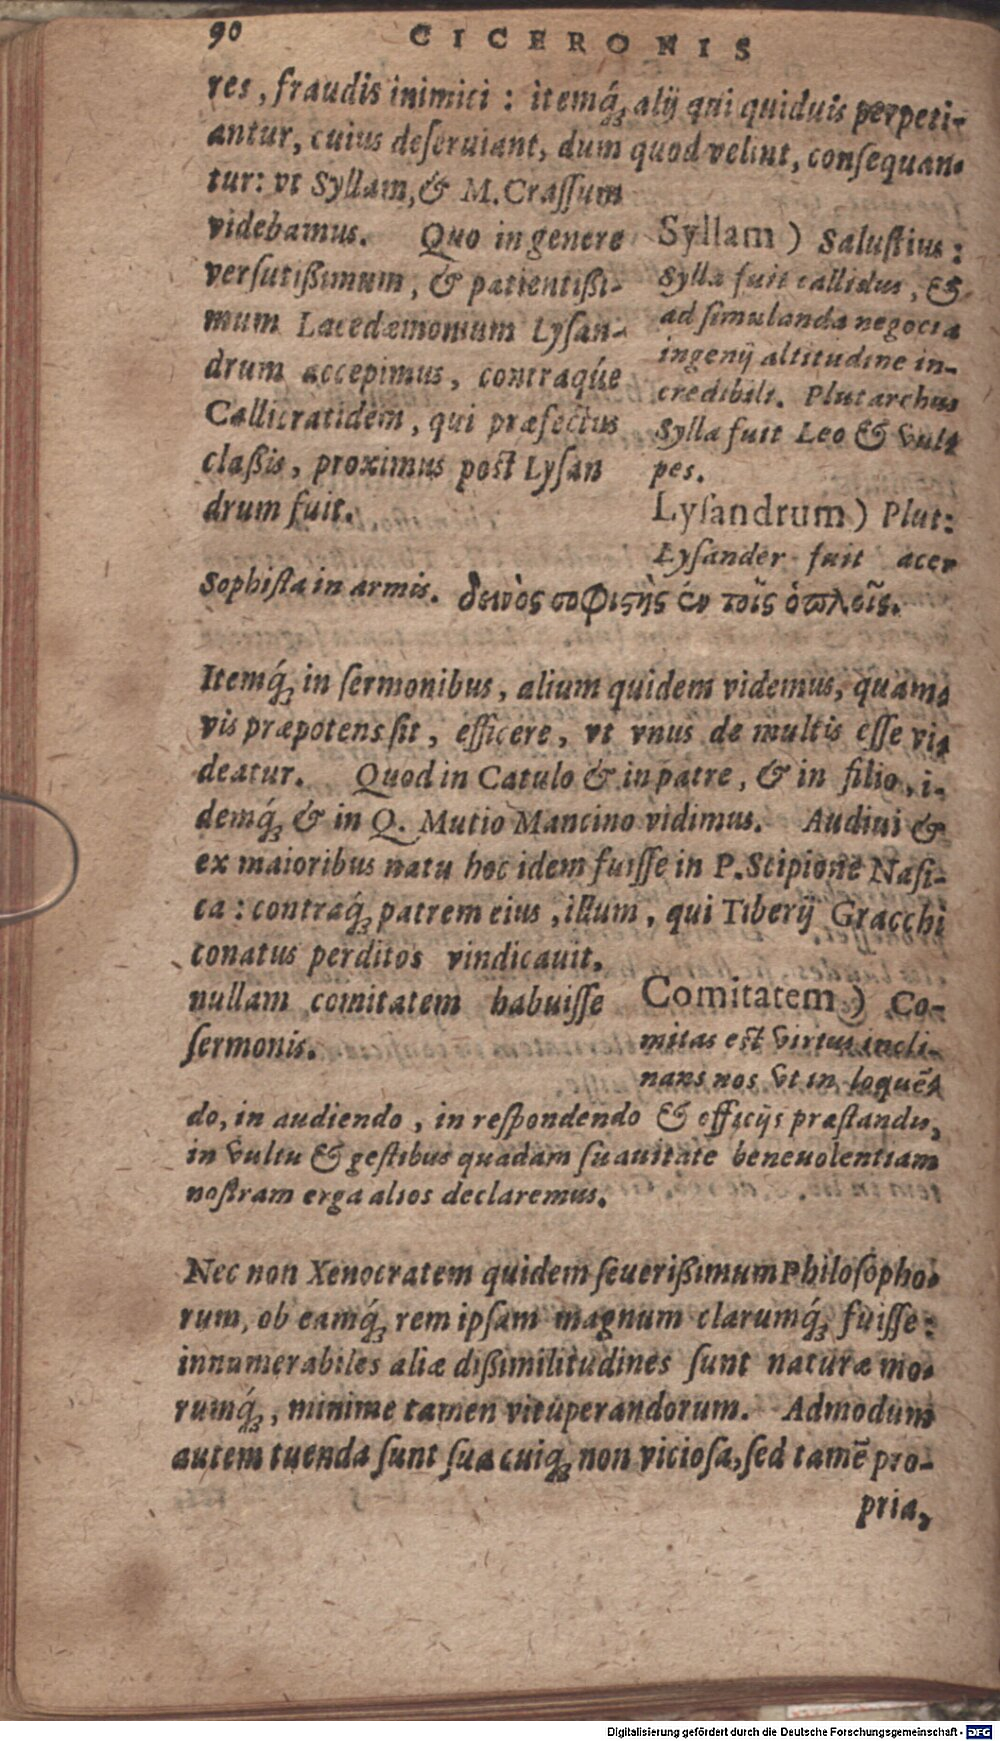 90 CICERONIS
res, fraudis inimici: itemq́ꝫ alij qui quiduis perpeti-
antur, cuius deseruiant, dum quod velint, consequan-
tur: vt Syllam, & M. Crassum
videbamus. Quo in genere
versutißimum, & patientißi-
mum Lacedæmonium Lysan-
drum accepimus, contraq́ue
Callicratidem, qui præfectus
claßis, proximus post Lysan
drum fuit.
Syllam) Salustius:
Sylla fuit callidus, &
ad simulanda negocia
ingenij altitudine in-
credibili. Plutarchus
Sylla fuit Leo & vul-
pes.
Lysandrum) Plut:
Lysander fuit acer
Sophista in armis. δεινὸς σοφιστὴς ἐν τοῖς ὁπλοῖς.
Itemq́ꝫ in sermonibus, alium quidem videmus, quam-
vis præpotens sit, efficere, vt vnus de multis esse vi-
deatur. Quod in Catulo & in patre, & in filio, i-
demq́ꝫ & in Q. Mutio Mancino vidimus. Audiui &
ex maioribus natu hoc idem fuisse in P. Scipione Nasi-
ca: contraq́ꝫ patrem eius, illum, qui Tiberij Gracchi
conatus perditos vindicauit,
nullam comitatem habuisse
sermonis.
Comitatem) Co-
mitas est virtus incli-
nans nos vt in loquẽ-
do, in audiendo, in respondendo & officijs præstandis,
in vultu & gestibus quadam suauitate beneuolentiam
nostram erga alios declaremus.
Nec non Xenocratem quidem seuerißimum Philosopho-
rum, ob eamq́ꝫ rem ipsam magnum clarumq́ꝫ fuisse:
innumerabiles aliæ dißimilitudines sunt naturæ mo-
rumq́ꝫ, minime tamen vituperandorum. Admodum
autem tuenda sunt sua cuiqꝫ non viciosa, sed tamẽ pro-
pria,
Digitalisierung gefördert durch die Deutsche Forschungsgemeinschaft - DFG